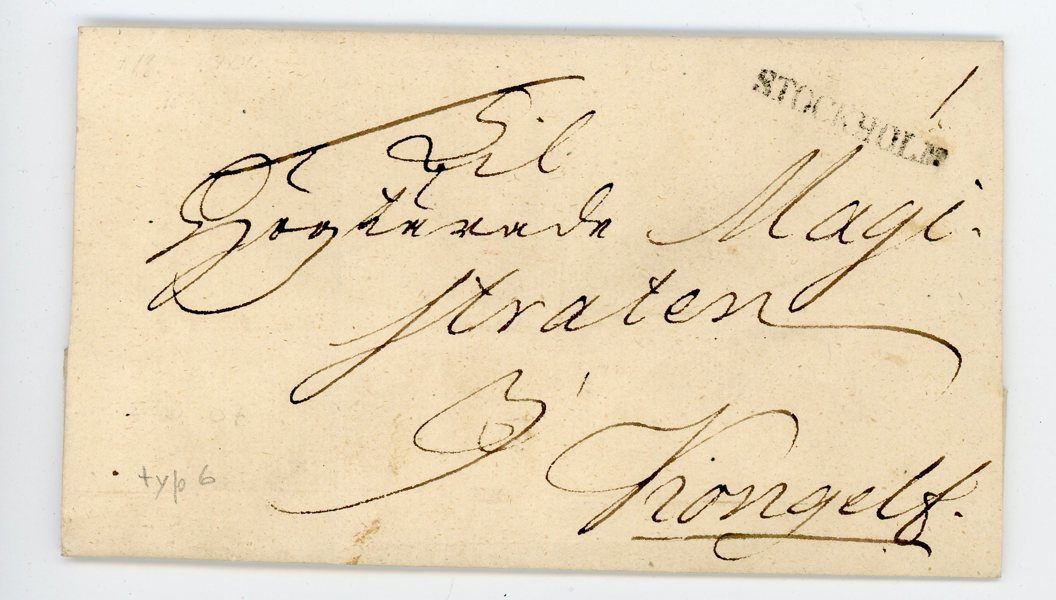 STOCKHOLM
Til
Högtärade Magi-
straten
i
Kongelf.
typ 6